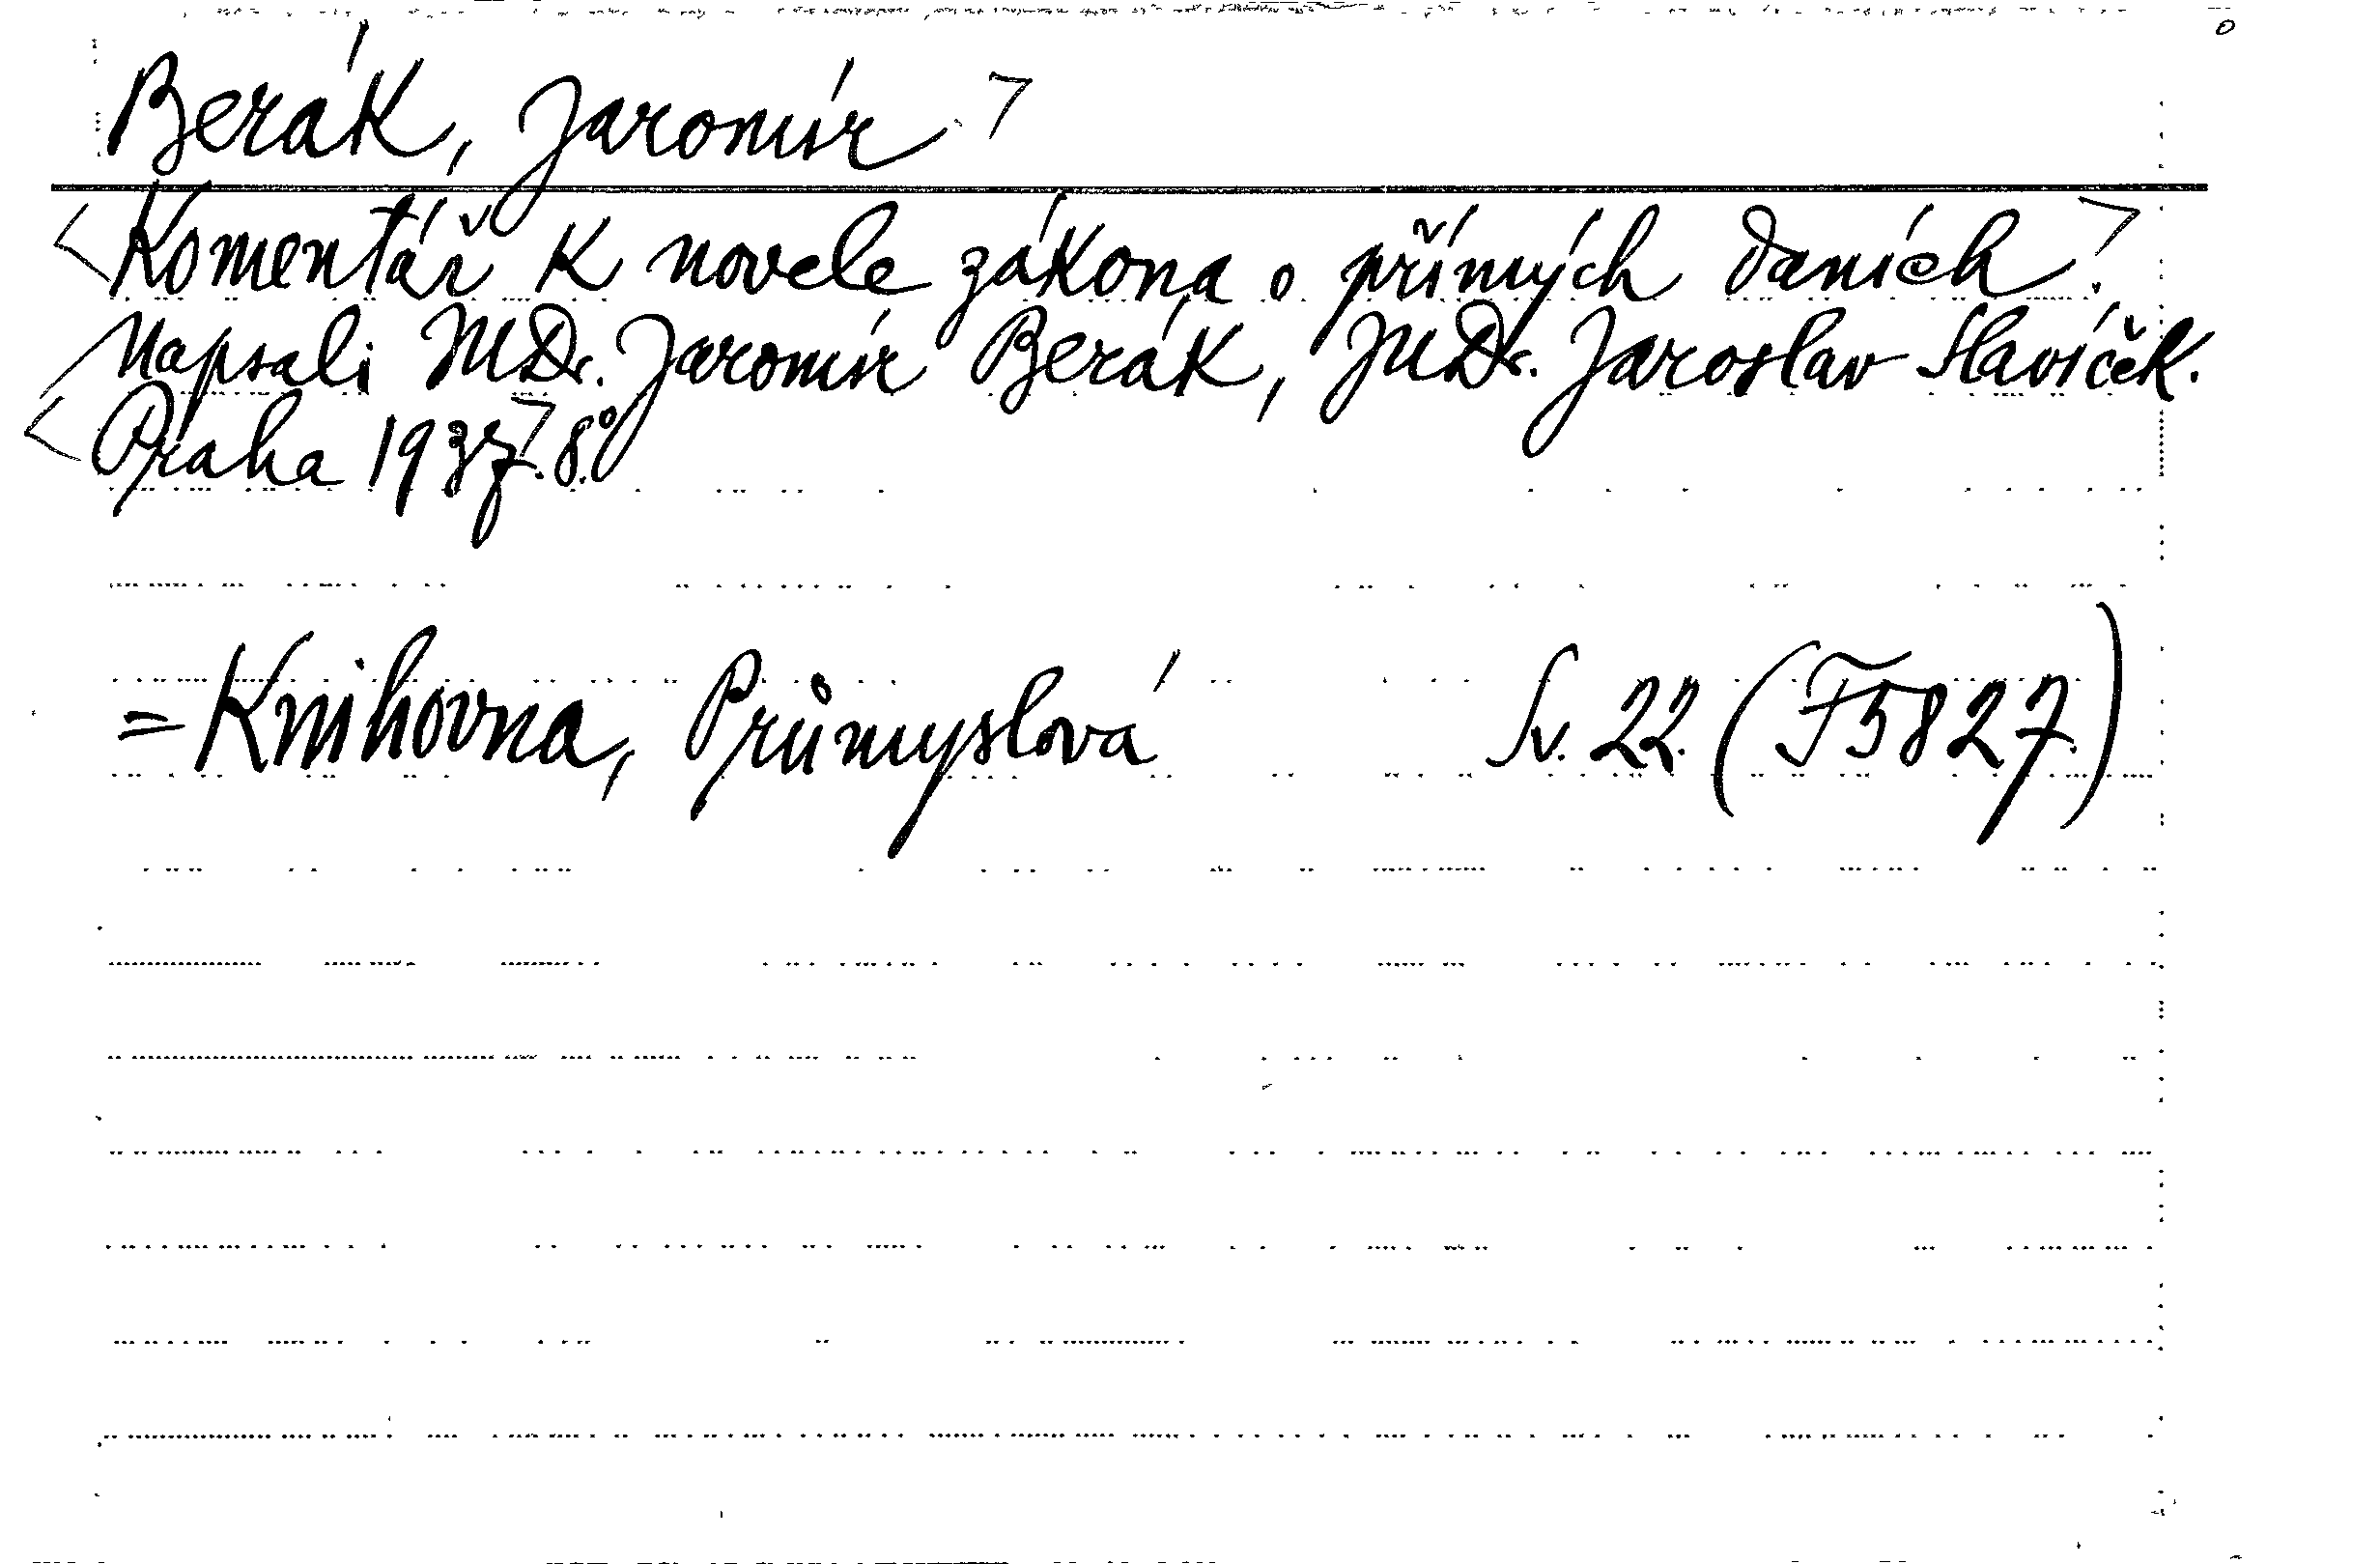 Berák, Jaromír >
<Komentář k novele zákona o přímých daních.>
Napsali JUDr. Jaromír Berák, JUDr. Jaroslav Slavíček.
<Praha 1937>. 8.°
= Knihovna, Průmyslová Sv. 22. (F5827.)